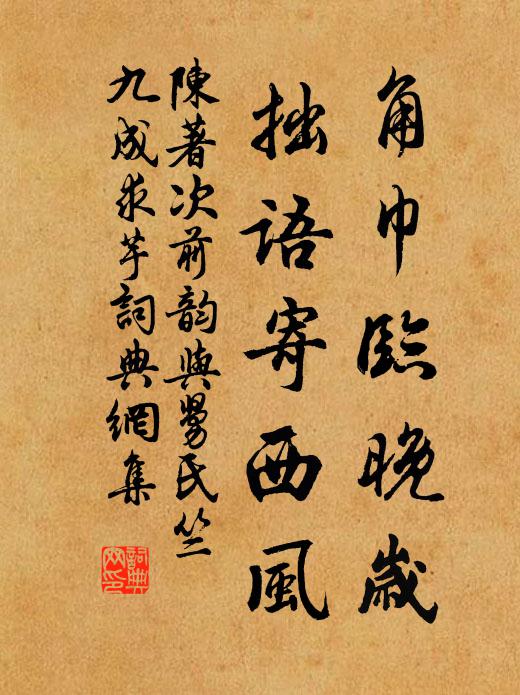 角巾臨晚歲
拙語寄西風
陳著次前韵與勞氏竺
九成求芋詞典網集
詞典網印